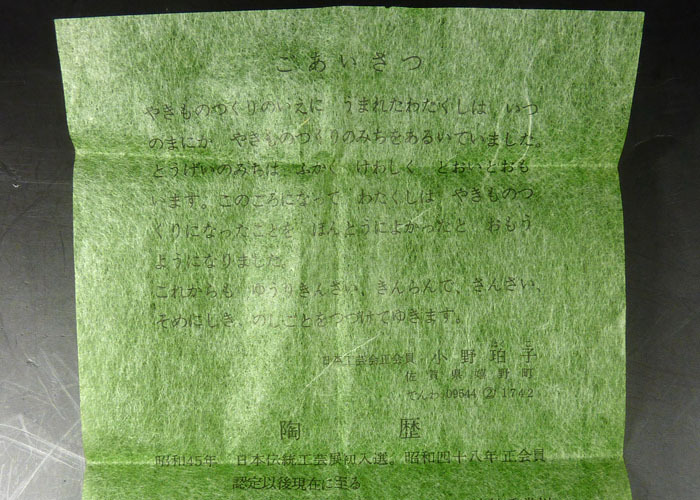 ごあいさつ
やきものづくりのいえに　うまれたわたくしは、いつ
のまにか　やきものづくりのみちをあるいていました。
とうげいのみちは　ふかく　けわしく　とおいとおも
います。このごろになって　わたくしは　やきものづ
くりになったことを　ほんとうによかったと　おもう
ようになりました。
これからも　ゆうりきんさい、きんらんで、さんさい、
そめにしき、のしごとをつづけてゆきます。
日本工芸会正会員　小野珀子
佐賀県嬉野町
でんわ 09544 ② 1742
陶　歴
昭和45年　日本伝統工芸展初入選。昭和四十八年正会員
認定以後現在に至る